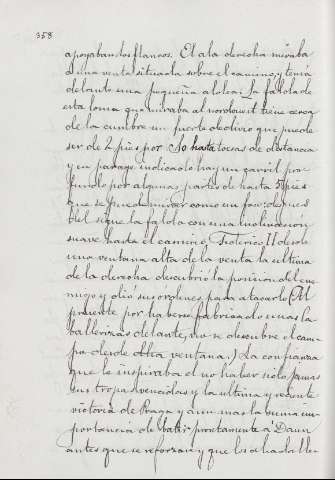 358
apoyaban dos flancos. El ala derecha miraba
a una venta situada sobre el camino, y tenia
delante una pequeña aldea. La falda de
esta loma que miraba al nordoeste tiene cerca
de la cumbre un fuerte declivio que puede
ser de 2 pies por 10 hasta toesas de distancia
y en parage indicado hay un carril pro-
fundo por algunas partes de hasta 5 pies
que se puede mirar como un foso: despues
del sigue la falda con una inclinacion
suave hasta el camino. Federico II desde
una ventana alta de la venta la ultima
de la derecha descubrió la posicion del ene-
migo y dió sus órdenes para atacarle (Al
presente por haberse fabricado unas ca-
ballerizas delante, no se descubre el cam-
po desde dicha ventana.) La confianza
que le inspiraba el no haber sido jamas
sus tropas vencidas y la ultima y reciente
victoria de Praga y aun mas la suma im-
portancia de batir prontamente á Daun
antes que se reforzara y que los